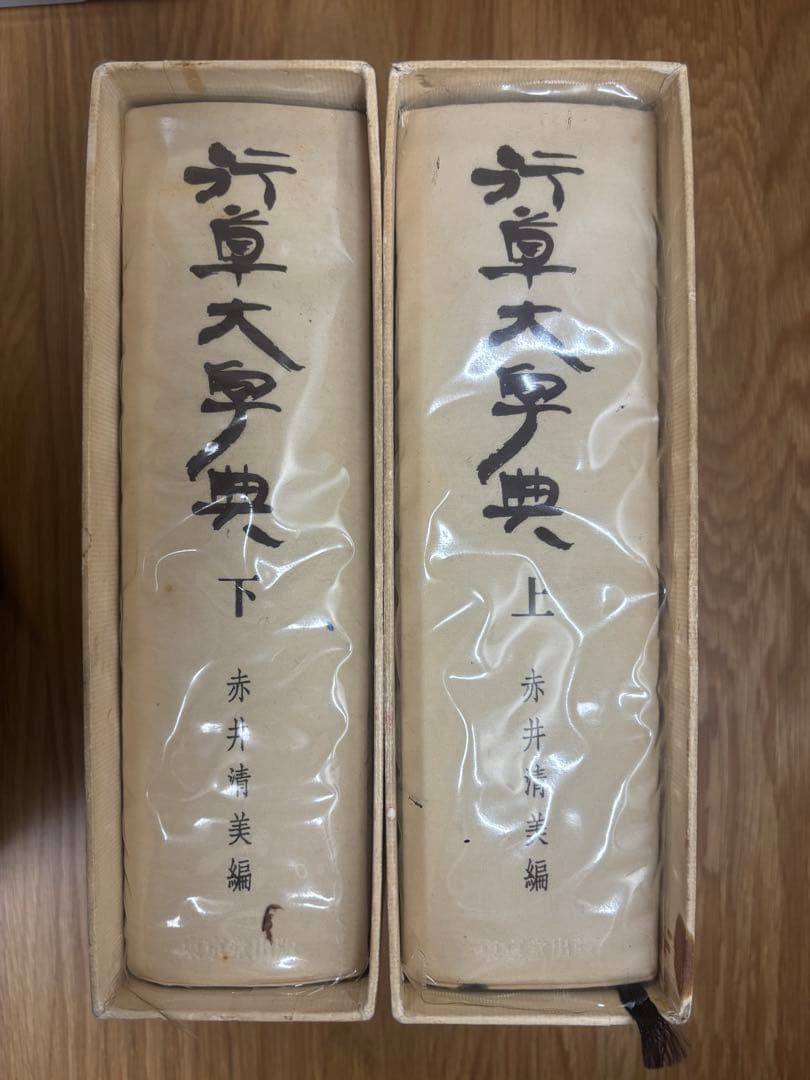 行草大字典
上
赤井清美編
東京堂出版
行草大字典
下
赤井清美編
東京堂出版